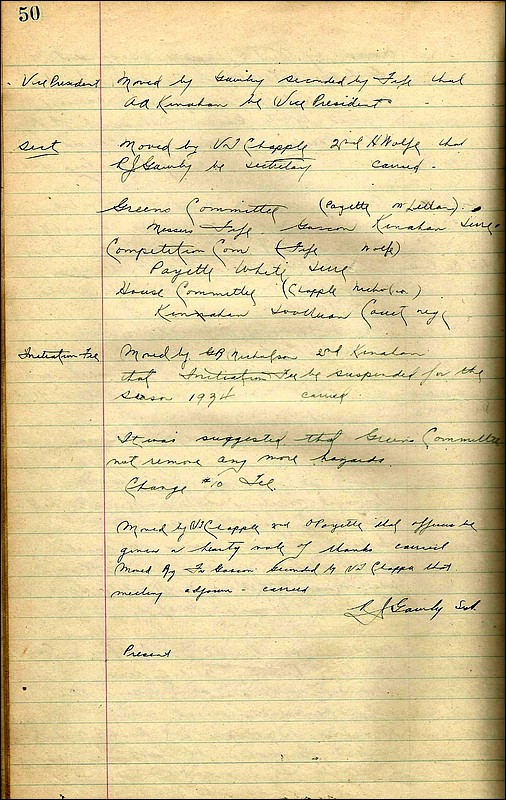 50
Vice President Moved by Gawley seconded by Fife that
A A Kinahan be Vice President
Sect Moved by V J Chapple 2nd H Wolfe that
R J Gawley be secretary carried -
Greens Committee (Payette McLellan).
Messers Fife Gasson Kinahan
Competition Com (Fife Wolfe)
Payette White
House Committee (Chapple Nicholson)
Kinnahan
Initiation Fee Moved by G A Nicholson 2nd Kinahan
that Initiation Fee be suspended for the
season 1934 carried
It was suggested that Greens Committee
not remove any more hazards.
Change #10 Tee.
Moved by V J Chapple 2nd Payette that officers be
given a hearty vote of thanks carried
Moved By Gasson Seconded by V J Chapple that
meeting adjourn - carried
R J Gawley Sect
Present